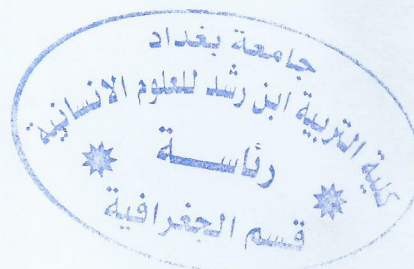 جامعة بغداد
كلية التربية ابن رشد للعلوم الانسانية
رئاســـة
قسم الجغرافية